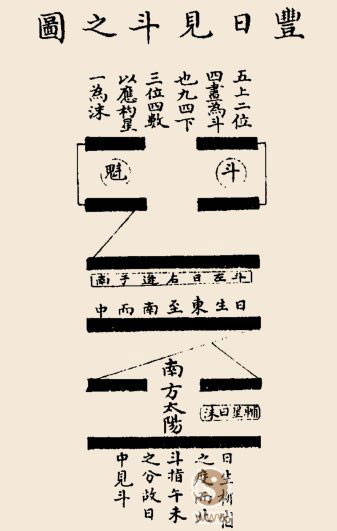 豐日見斗之圖
五上二位
四畫為斗
也九四下
三位四數
以應杓星
一為沫
斗
魁
斗左日右逆于南
日生東至南而中
南方太陽
輔星曰沫
日生析
之度而北
斗指午未
之分故日
中見斗